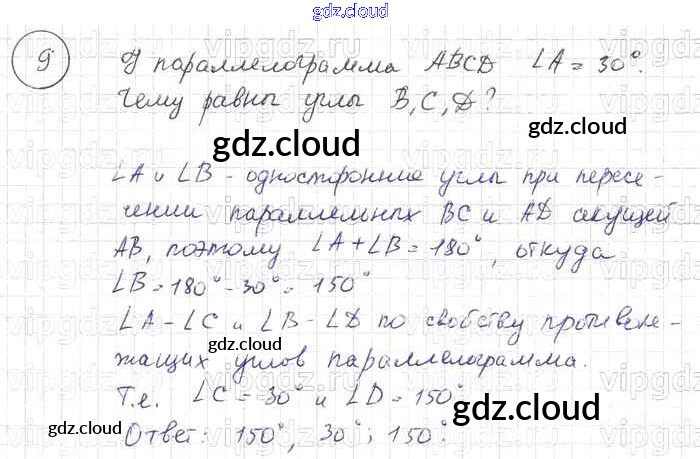 gdz.cloud
9 У параллелограмма ABCD ∠A = 30°.
Чему равны углы B, C, D?
gdz.cloud
gdz.cloud
∠A и ∠B - односторонние углы при пересе-
чении параллельных BC и AD секущей
AB, поэтому ∠A + ∠B = 180°, откуда
∠B = 180° - 30° = 150°
∠A - ∠C и ∠B - ∠D по свойству противоле-
gdz.cloud
жащих углов параллелограмма.
Т.е. ∠C = 30° и ∠D = 150°
gdz.cloud
Ответ: 150°, 30°; 150°.
gdz.cloud